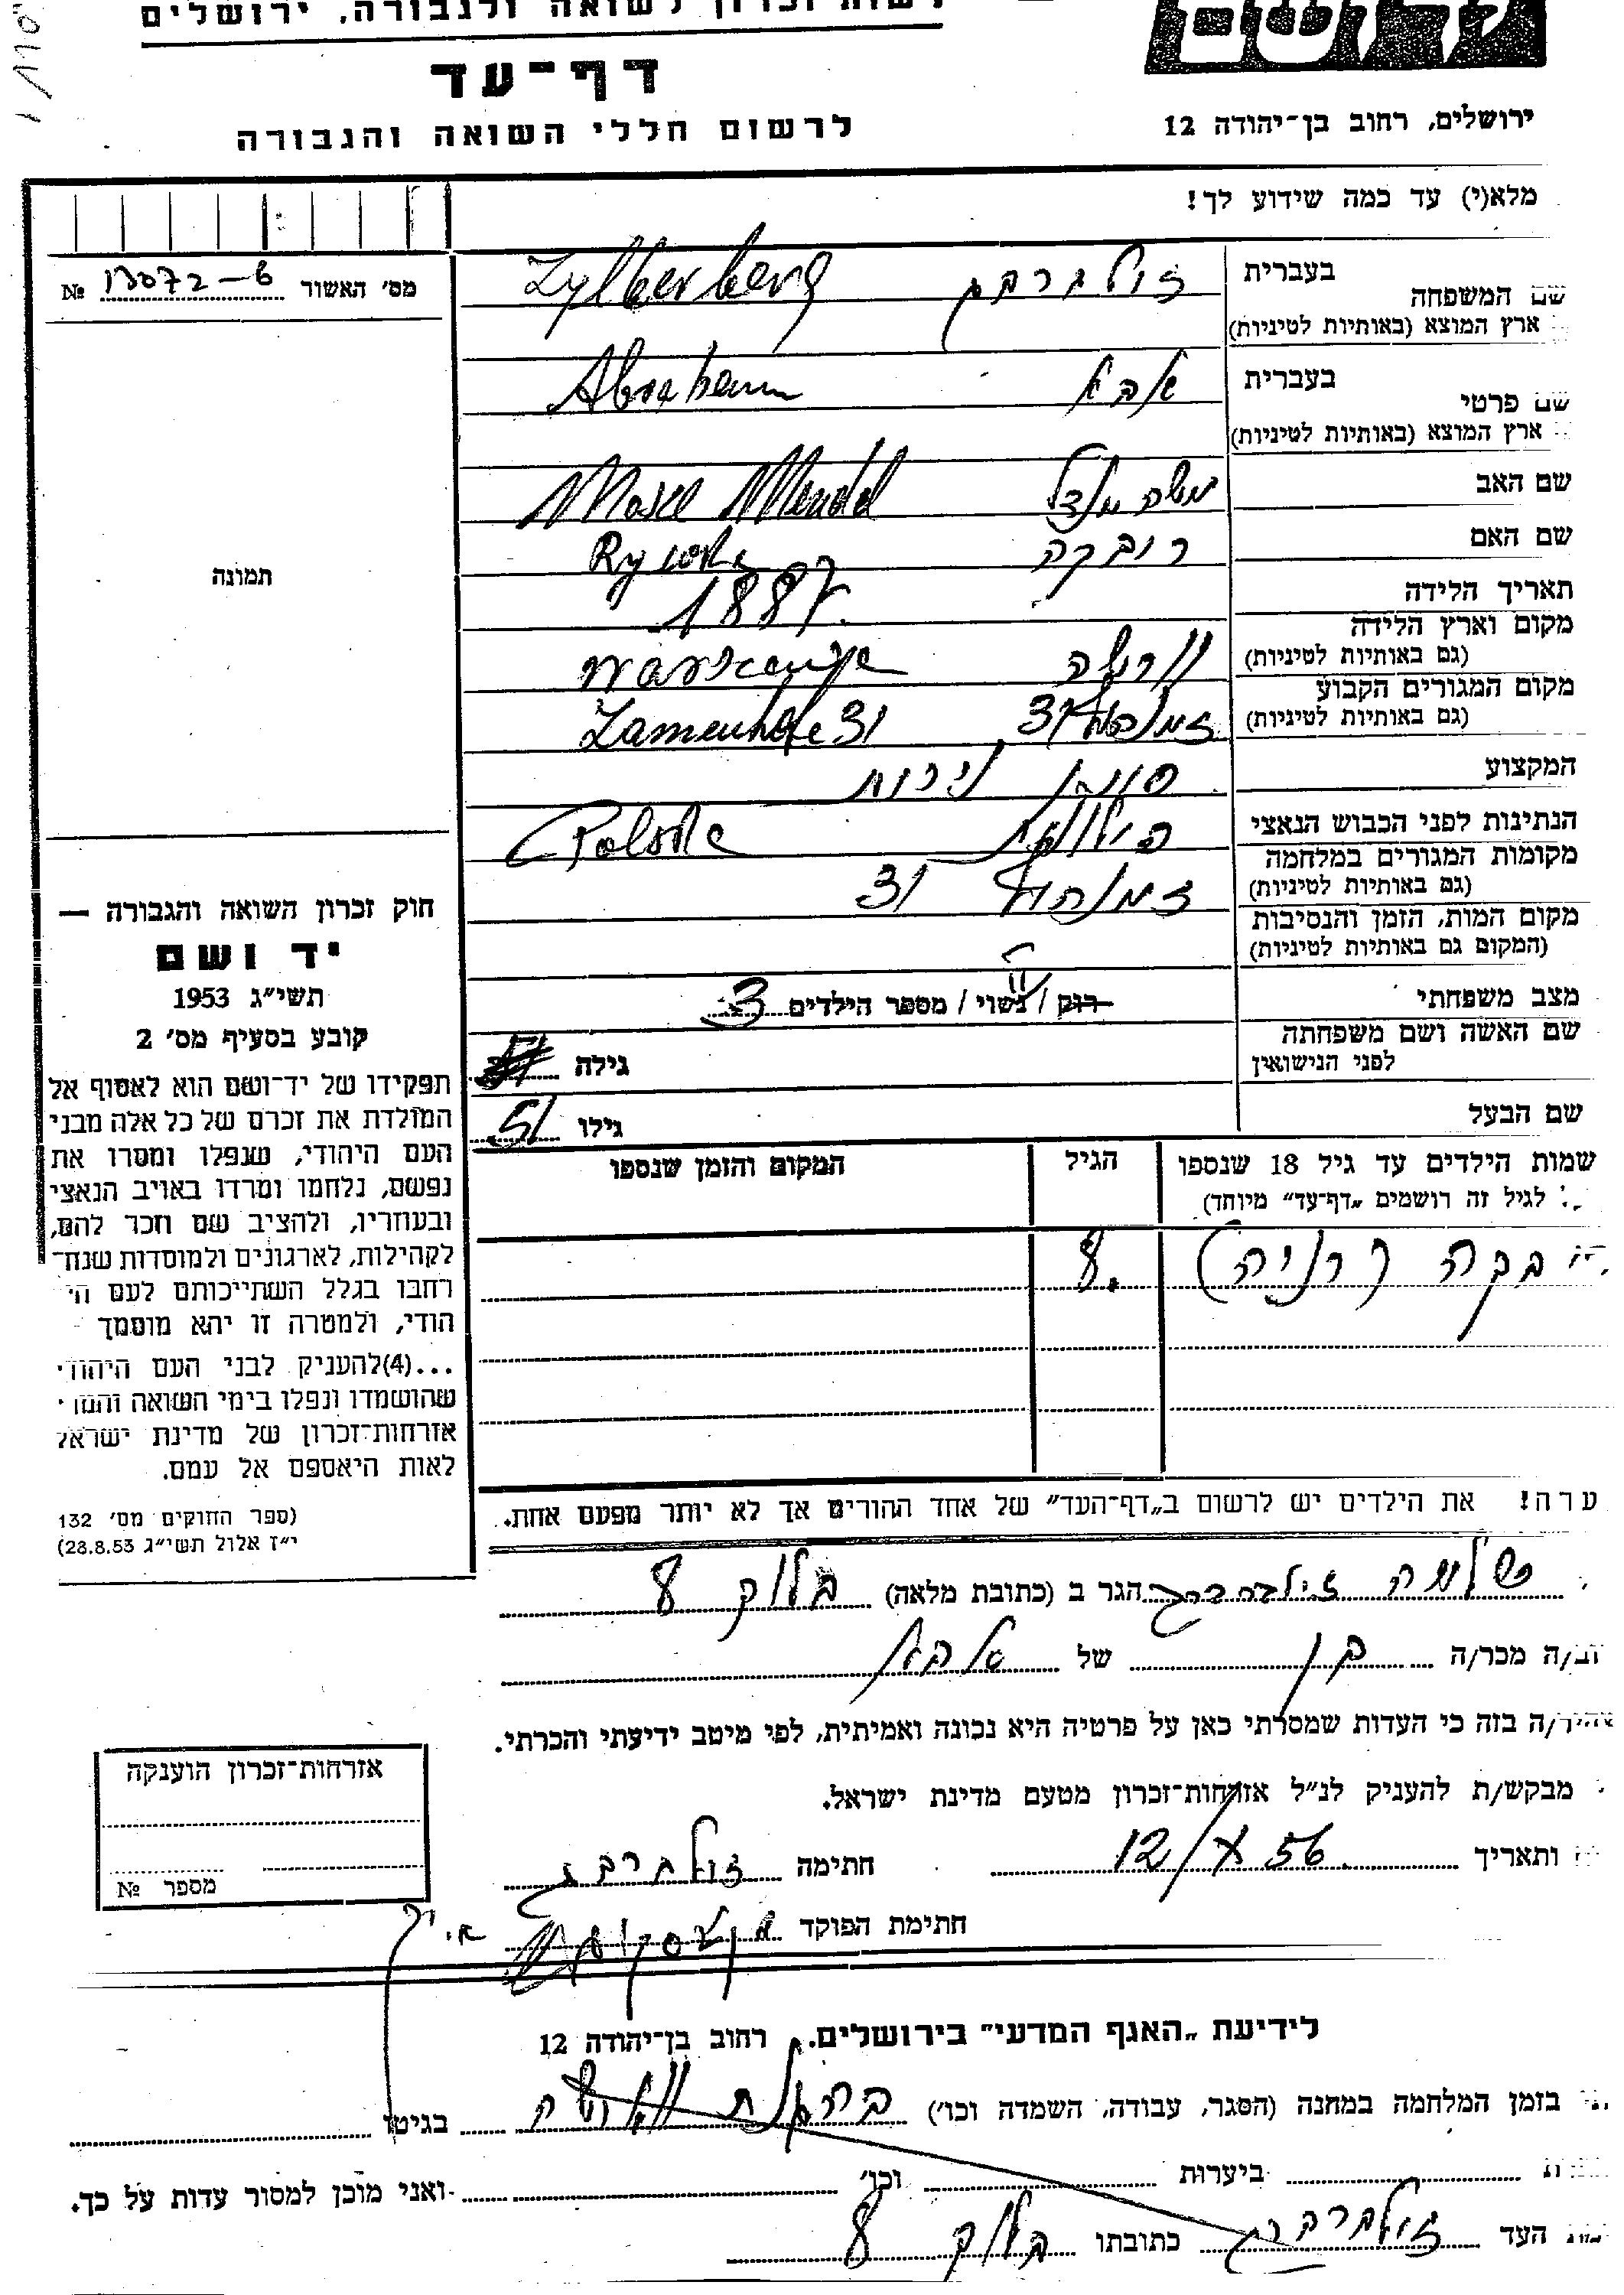 רשות זכרון לשואה ולגבורה, ירושלים
דף־עד
לרשום חללי השואה והגבורה
ירושלים, רחוב בן־יהודה 12
מלא(י) עד כמה שידוע לך!
מס׳ האשור № 13072-6
תמונה
שם המשפחה בעברית זילברברג Zylberberg
ארץ המוצא (באותיות לטיניות)
שם פרטי בעברית אבא Abraham
ארץ המוצא (באותיות לטיניות)
שם האב משה מנדל Mosze Mendel
שם האם רובקה Rywka
תאריך הלידה 1887.
מקום וארץ הלידה (גם באותיות לטיניות) וורשה
מקום המגורים הקבוע (גם באותיות לטיניות) זמנהוף 31 Zamenhofe 31
המקצוע סוחר נירות
הנתינות לפני הכבוש הנאצי פולנית Polska
מקומות המגורים במלחמה (גם באותיות לטיניות) זמנהוף 31
מקום המות, הזמן והנסיבות
(המקום גם באותיות לטיניות)
מצב משפחתי רוק / נשוי / מספר הילדים 3
שם האשה ושם משפחתה לפני הנישואין גילה
שם הבעל גילו 51
שמות הילדים עד גיל 18 שנספו הגיל המקום והזמן שנספו
לגיל זה רושמים „דף־עד״ מיוחד)
8.
ערה! את הילדים יש לרשום ב„דף־העד״ של אחד ההורים אך לא יותר מפעם אחת.
חוק זכרון השואה והגבורה —
יד ושם
תשי״ג 1953
קובע בסעיף מס׳ 2
תפקידו של יד־ושם הוא לאסוף אל
המולדת את זכרם של כל אלה מבני
העם היהודי, שנפלו ומסרו את
נפשם, נלחמו ומרדו באויב הנאצי
ובעוזריו, ולהציב שם וזכר להם,
לקהילות, לארגונים ולמוסדות שנח־
רחבו בגלל השתייכותם לעם הי
הודי, ולמטרה זו יהא מוסמך
...(4)להעניק לבני העם היהודי
שהושמדו ונפלו בימי השואה והמרי
אזרחות־זכרון של מדינת ישראל
לאות היאספם אל עמם.
(ספר החוקים מס׳ 132
י״ז אלול תשי״ג 28.8.53)
שלמה זילברברג הגר ב (כתובת מלאה) בלוק 8
וב/ה מכר/ה בן של אבא
מצהיר/ה בזה כי העדות שמסרתי כאן על פרטיה היא נכונה ואמיתית, לפי מיטב ידיעתי והכרתי.
מבקש/ת להעניק לנ״ל אזרחות־זכרון מטעם מדינת ישראל.
ותאריך 12/X 56 חתימה זילברברג
חתימת הפוקד
אזרחות־זכרון הוענקה
מספר №
לידיעת „האגף המדעי״ בירושלים. רחוב בן־יהודה 12
בזמן המלחמה במחנה (הסגר, עבודה, השמדה וכו׳) בגיטו
ביערות וכו׳ ואני מוכן למסור עדות על כך.
העד זילברברג כתובתו בלוק 8